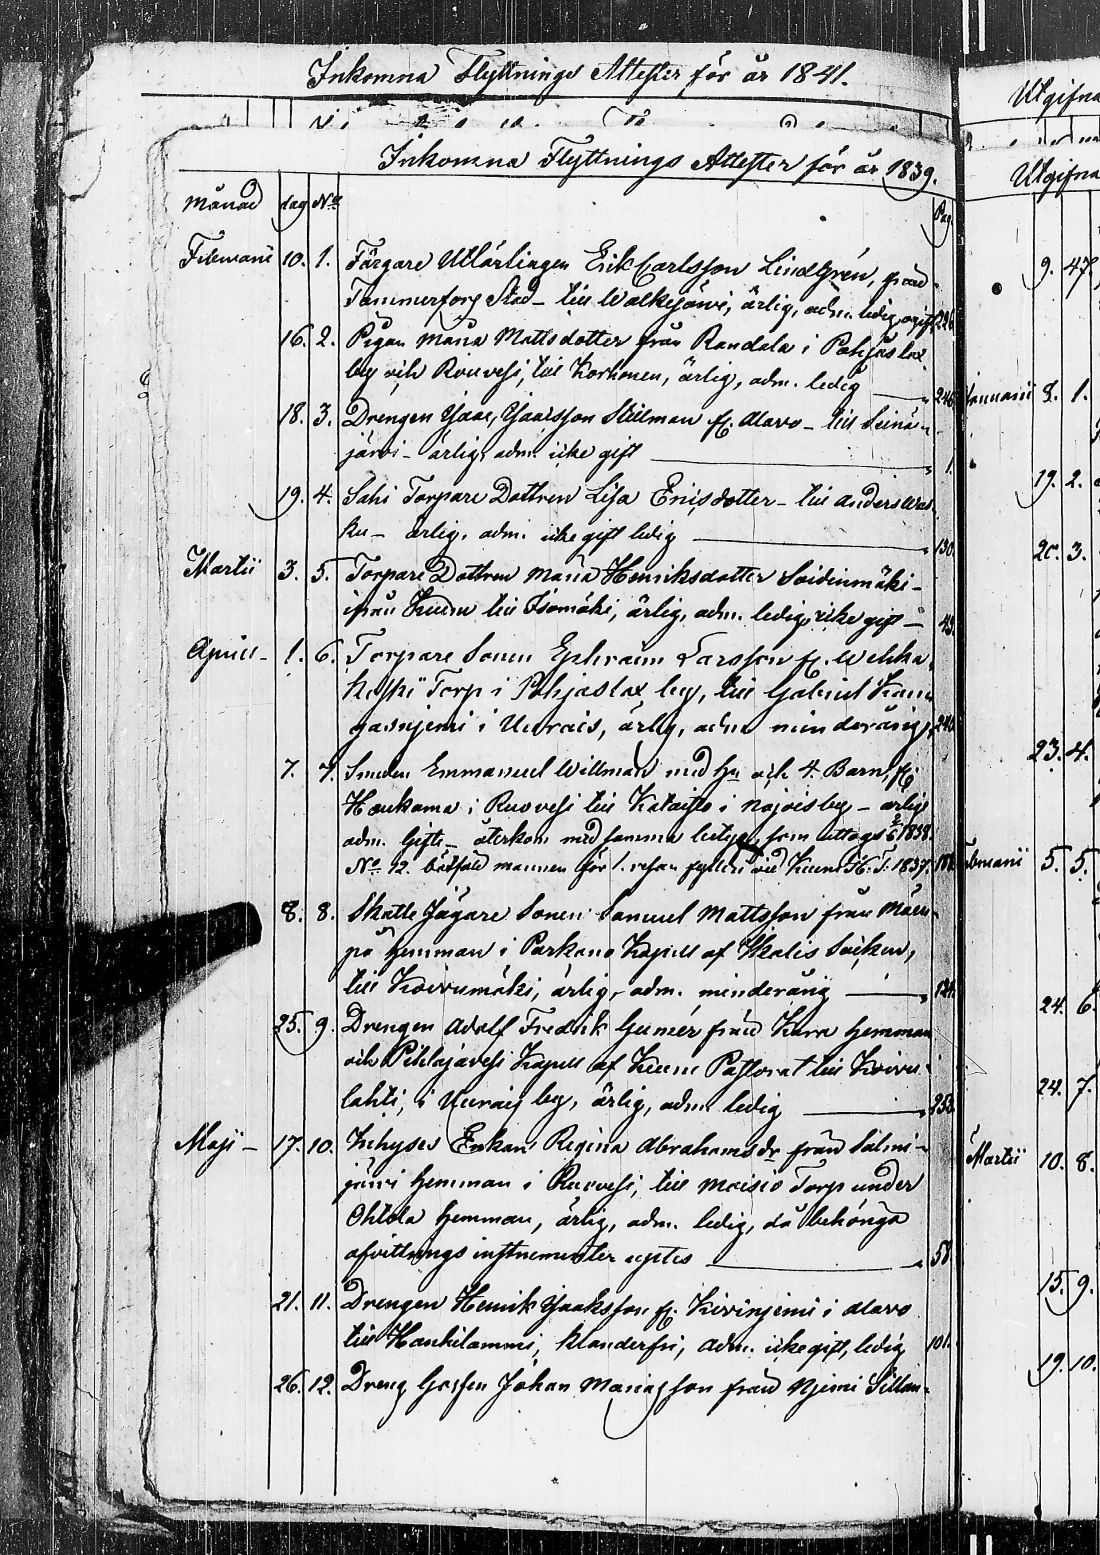 Inkomna Flyttnings Attester för år 1841.
Utgifna
Inkomna Flyttnings Attester för år 1839.
Utgifna
månad dag No Pag
Februarii 10. 1. Färgare Utlärlingen Erik Carlsson Lindgrén, från
Tammerfors Stad – till Walkejärvi, ärlig, adm. ledig ogift 226
16. 2. Pigan Maria Mattsdotter från Randala i Pohjaslax
by och Rouvesi, till Korhonen, ärlig, adm. ledig 246
18. 3. Drengen Isaac Isaacsson Stillman fr. Alavo – till Seinä-
järvi – ärlig, adm. icke gift 1.
19. 4. Sahi Torpare Dottren Lisa Ericsdotter – till Anders Was-
ku – ärlig, adm. icke gift ledig 130.
Martii 3. 5. Torpare Dottren Maria Henriksdotter Soidinmäki –
ifrån Keuru till Isomäki, ärlig, adm. ledig, icke gift – 43.
Aprill – 1. 6. Torpare Sonen Ephraim Larsson fr.
koski Torp i Pohjaslax by, till Gabriel Kan-
gasnjemi i Uurais, ärlig, adm. minderårig, 240.
7. 7. Smeden Emmanuel Willman med Hu och 4. Barn, fr.
Haukama i Ruovesi till i by – ärlig
adm. Gifte – återkom med samma betyg, som uttogs 1838.
No 12. bötfäld mannen för 1. resan fylleri vid Keuru H. T. 1837.
8. 8. Skatte Jägare Sonen Samuel Mattsson från Mäen-
pä Hemman i Parkano Kapell af Ikalis Socken,
till Koivumäki, ärlig, adm. minderårig 124.
25. 9. Drengen Adolf Fredrik Gumér från Karra Hemman
och Pihlajavesi Kapell af Keuru Pastorat till Koivu-
lahti, i Uurais by, ärlig, adm. ledig 253.
Maji – 17. 10. Inhyses Enkan Regina Abrahamsdr från Salmi-
järvi Hemman i Ruovesi, till Moisio Torp under
Ohtola Hemman, ärlig, adm. ledig, då behöriga
afvittrings instrumenter uptes 58
21. 11. Drengen Henrik Isaksson fr. Kivinjemi i Alavo
till Hankilammi, klanderfri, adm. icke gift, ledig 101.
26. 12. Dreng Gossen Johan Mariasson från Njemi Sillan-
9. 47.
Januarii 8. 1.
19. 2.
20. 3.
23. 4.
Februarii 5. 5.
24. 6.
24. 7.
Martii 10. 8.
15. 9.
19. 10.